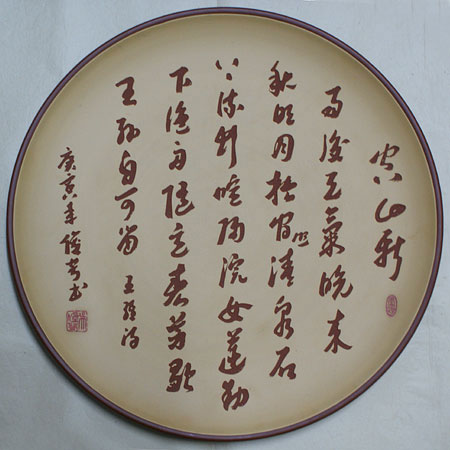 空山新
雨後天氣晚来
秋明月松間照清泉石
上流竹喧歸浣女蓮動
下漁舟随意春芳歇
王孫自可留 王維詩
庚寅年俊芳书